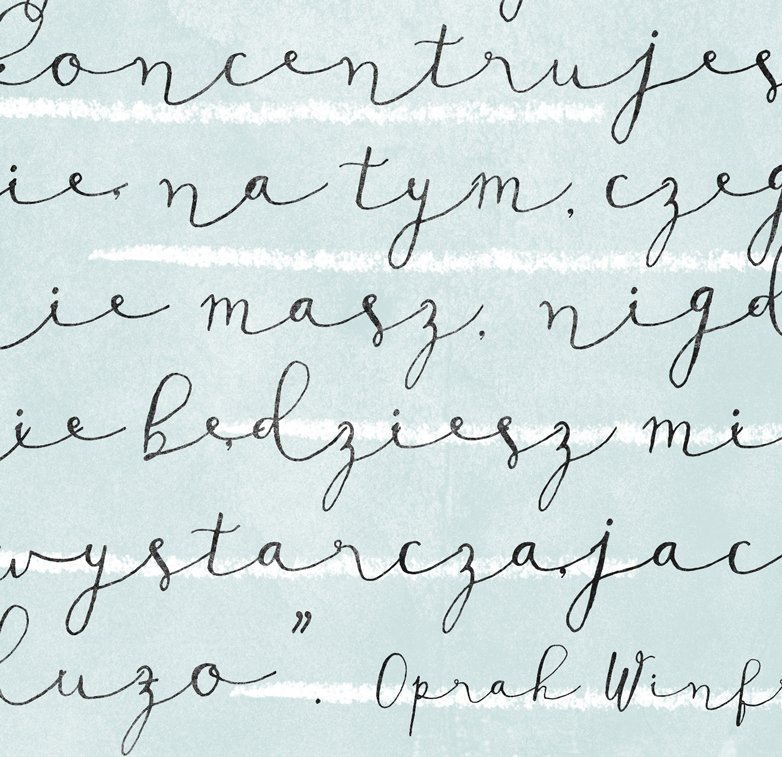 koncentrujes
ię na tym, czeg
ie masz, nigd
ie będziesz mi
wystarczająac
duzo”.  Oprah Winfr